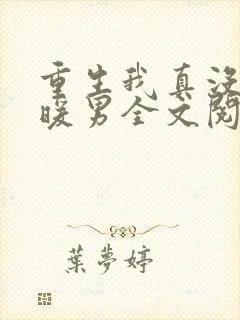 重生我真没
暖男全文阅
葉夢婷